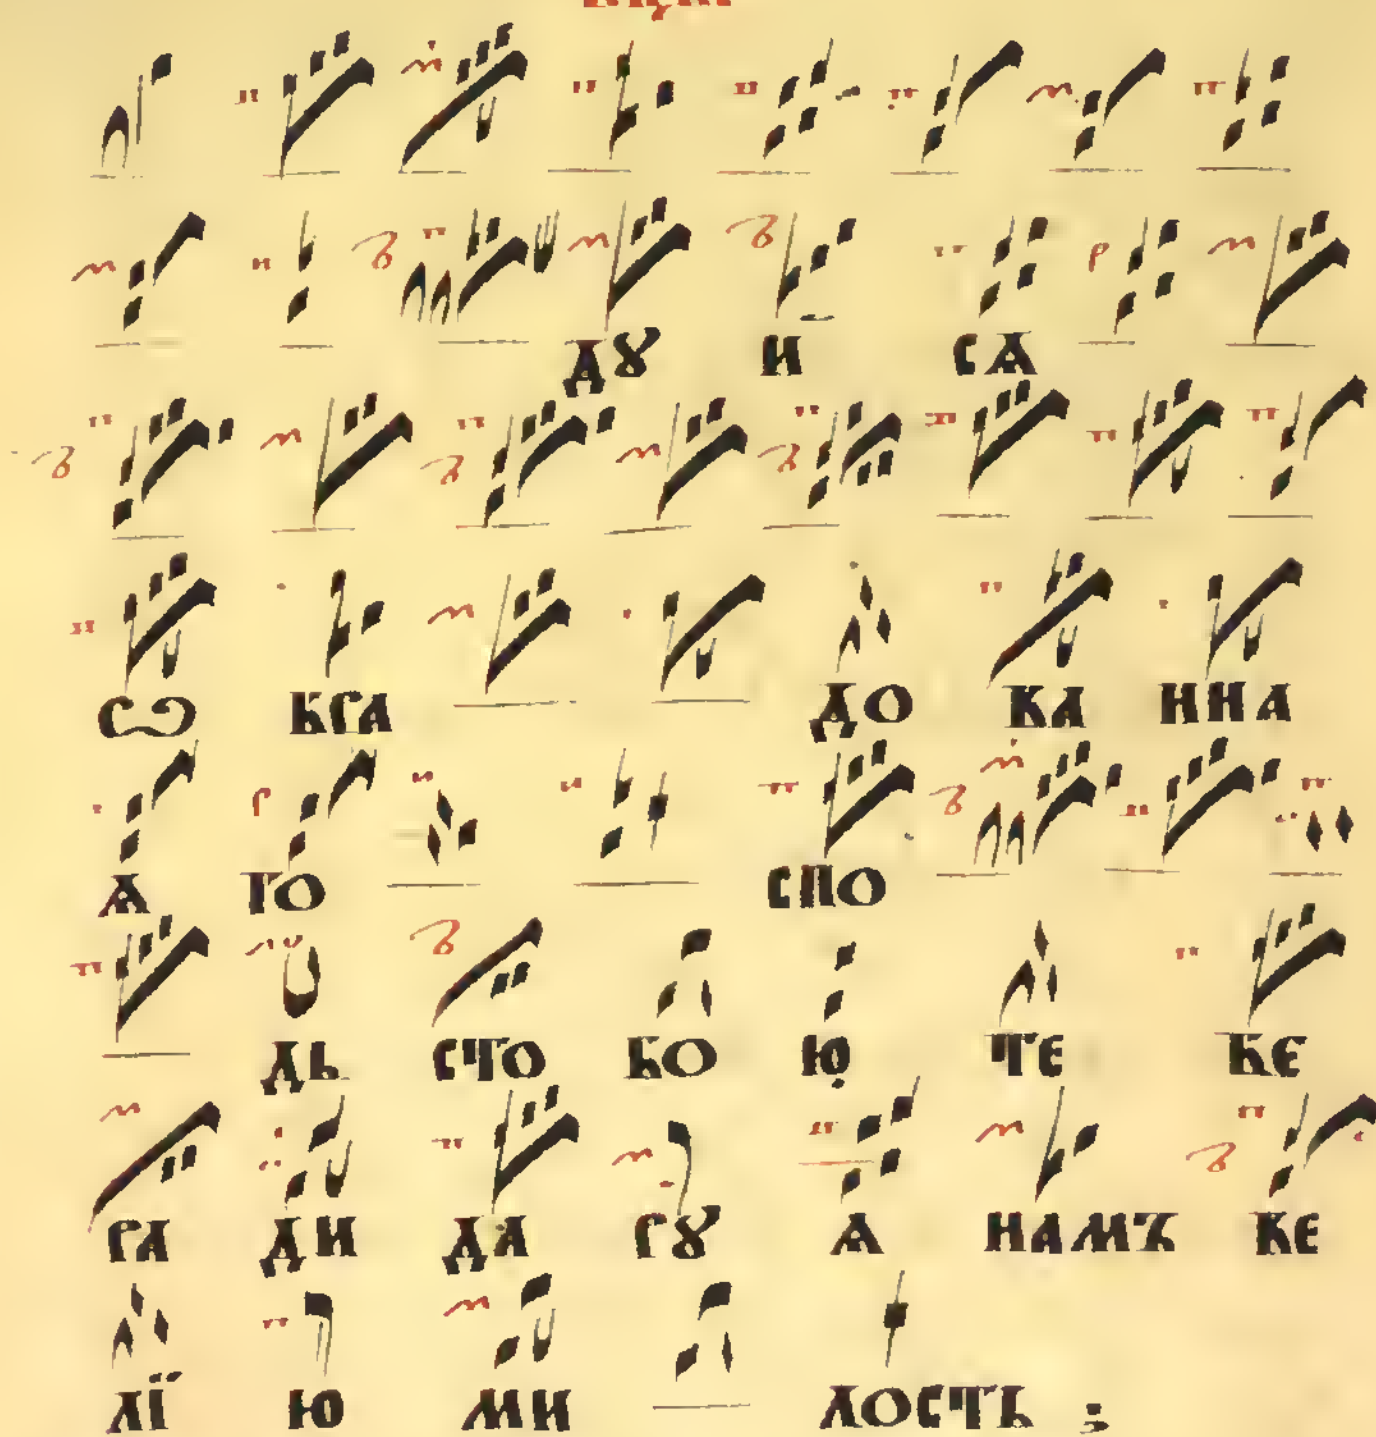 ДꙊ И СѦ
Ѡ БРА ДО ВА ННА
Ѧ ГО СПО
ДЬ СТО БО Ю ТЕ БЕ
РА ДИ ДА РꙊ Ѧ НАМЪ ВЕ
ЛЇ Ю МИ ЛОСТЬ ;